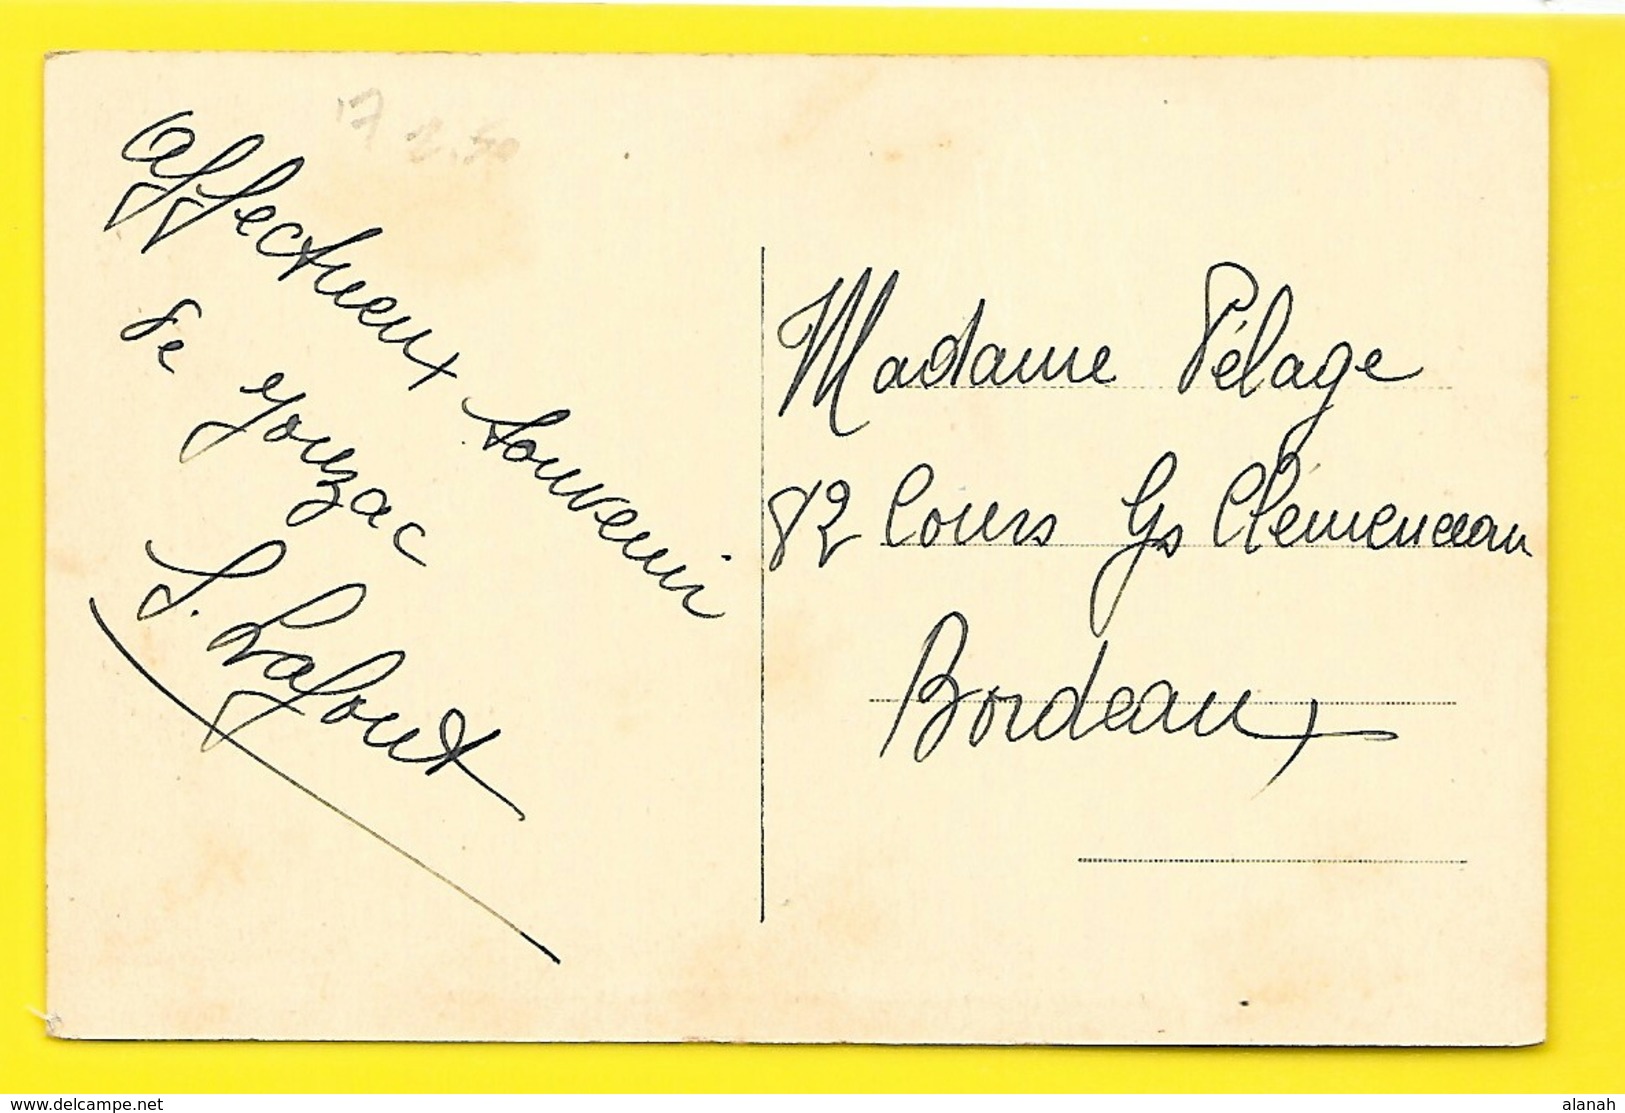 Affectueux souvenir
de Jonzac
S. Lafont
Madame Pélage
82 Cours Gs Clémenceau
Bordeaux
www.delcampe.net
alanah